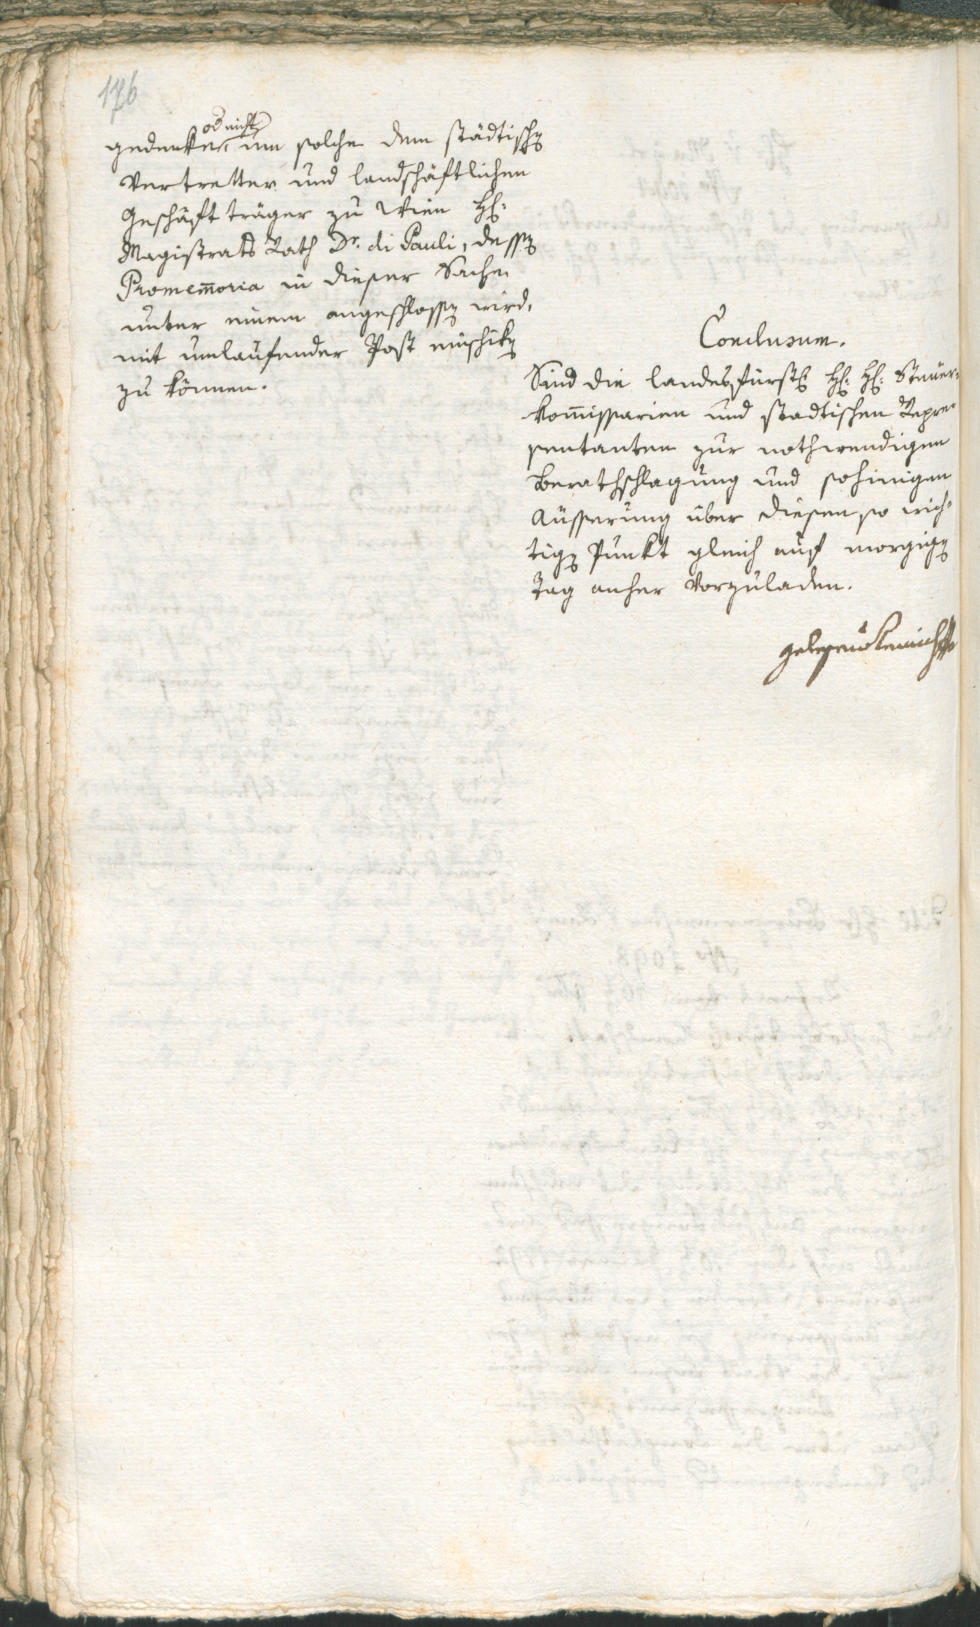 176
od nicht
gedenke, um solche dem städtisch(en)
Vertretter und landschäftlichen
Geschäft träger zu Wien H:
Magistrats Rath Dr. di Pauli, dess(en)
Promemoria in dieser Sache
unter einem angeschloss(en) wird,
mit umlaufender Post einschik(en)
zu können.
Conclusum.
Sind die landesfürstl: H: H: Steüer-
kom̅issarien und stadtischen Repre-
sentanten zur nothwendigen
Berathschlagung und sohinigen
Aüsserung über diesen so wich-
tig(en) Punkt gleich auf morgig(en)
Tag anher vorzuladen.